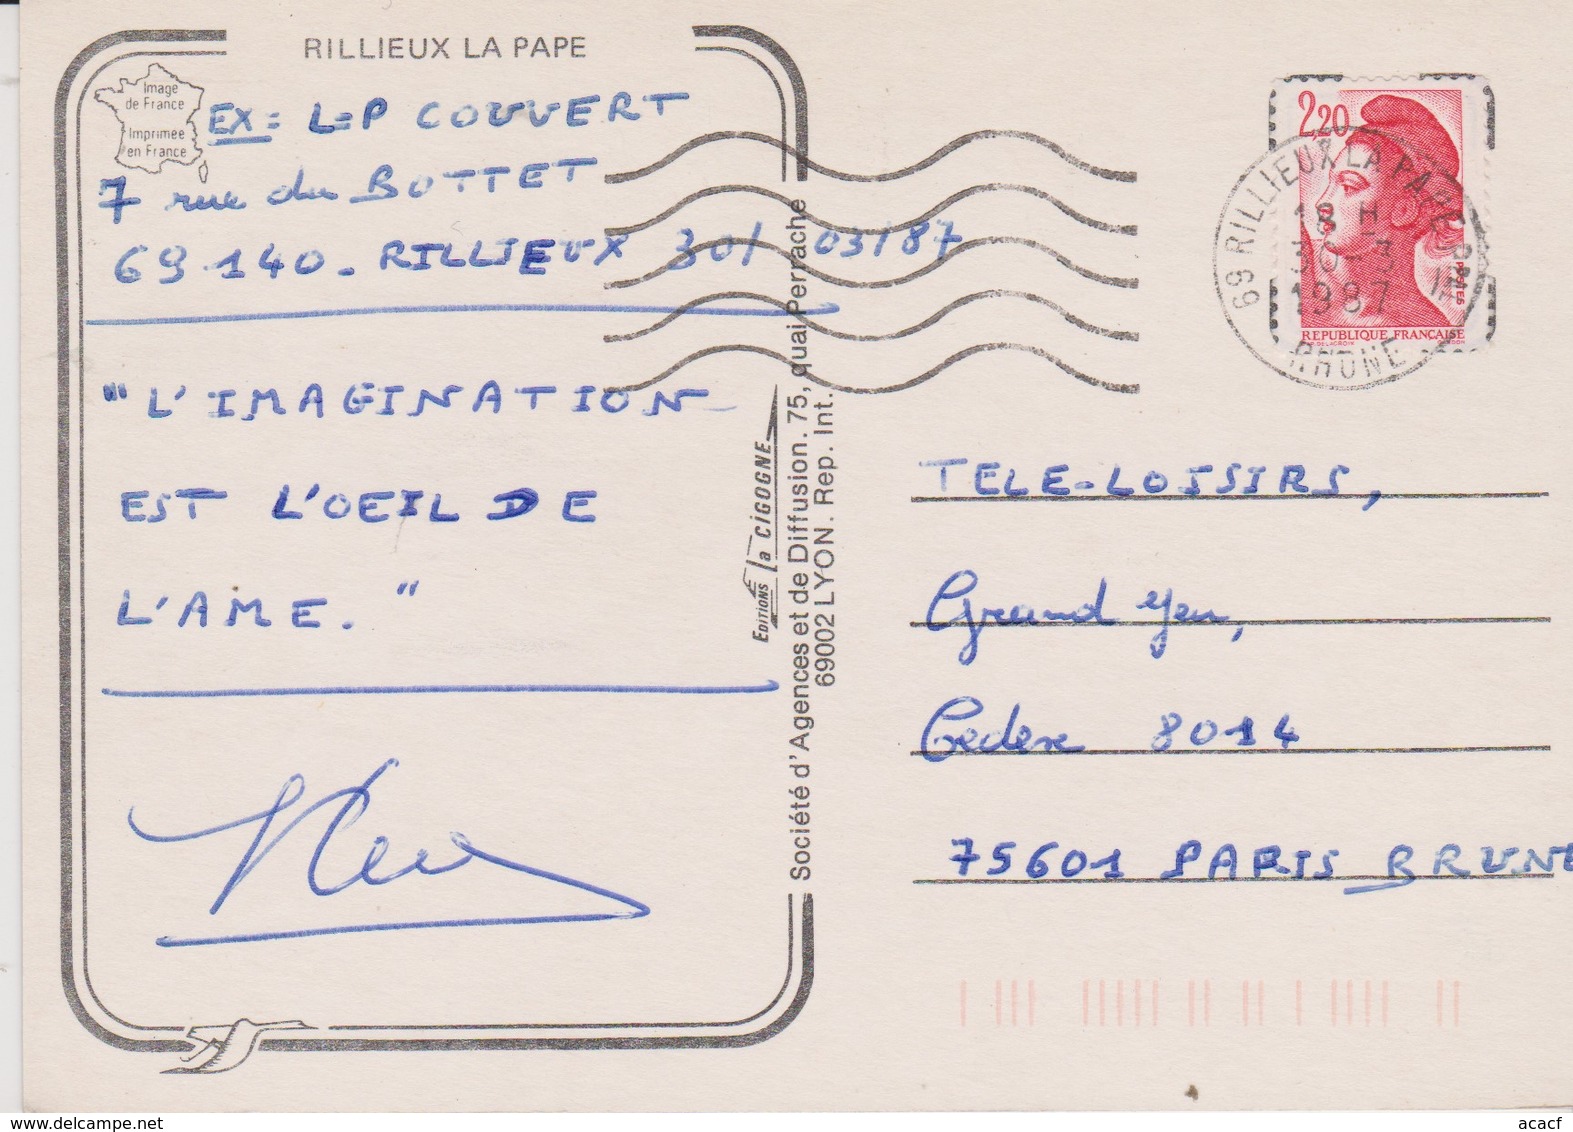 RILLIEUX LA PAPE
Image
de France
Imprimée
en France
EX= L=P COUVERT
7 rue du BOTTET
69140-RILLIEUX 30/03/87
"'L'IMAGINATION
EST L'OEIL DE
L'AME."
EDITIONS la CIGOGNE
Société d'Agences et de Diffusion. 75, quai Perrache
69002 LYON. Rep. Int.
2,20
POSTES
REPUBLIQUE FRANÇAISE
69 RILLIEUX LA PAPE
18 H
30-3
1987
RHONE
TELE-LOISIRS,
Grand Jeu,
Cedex 8014
75601 PARIS BRUNE
acacf